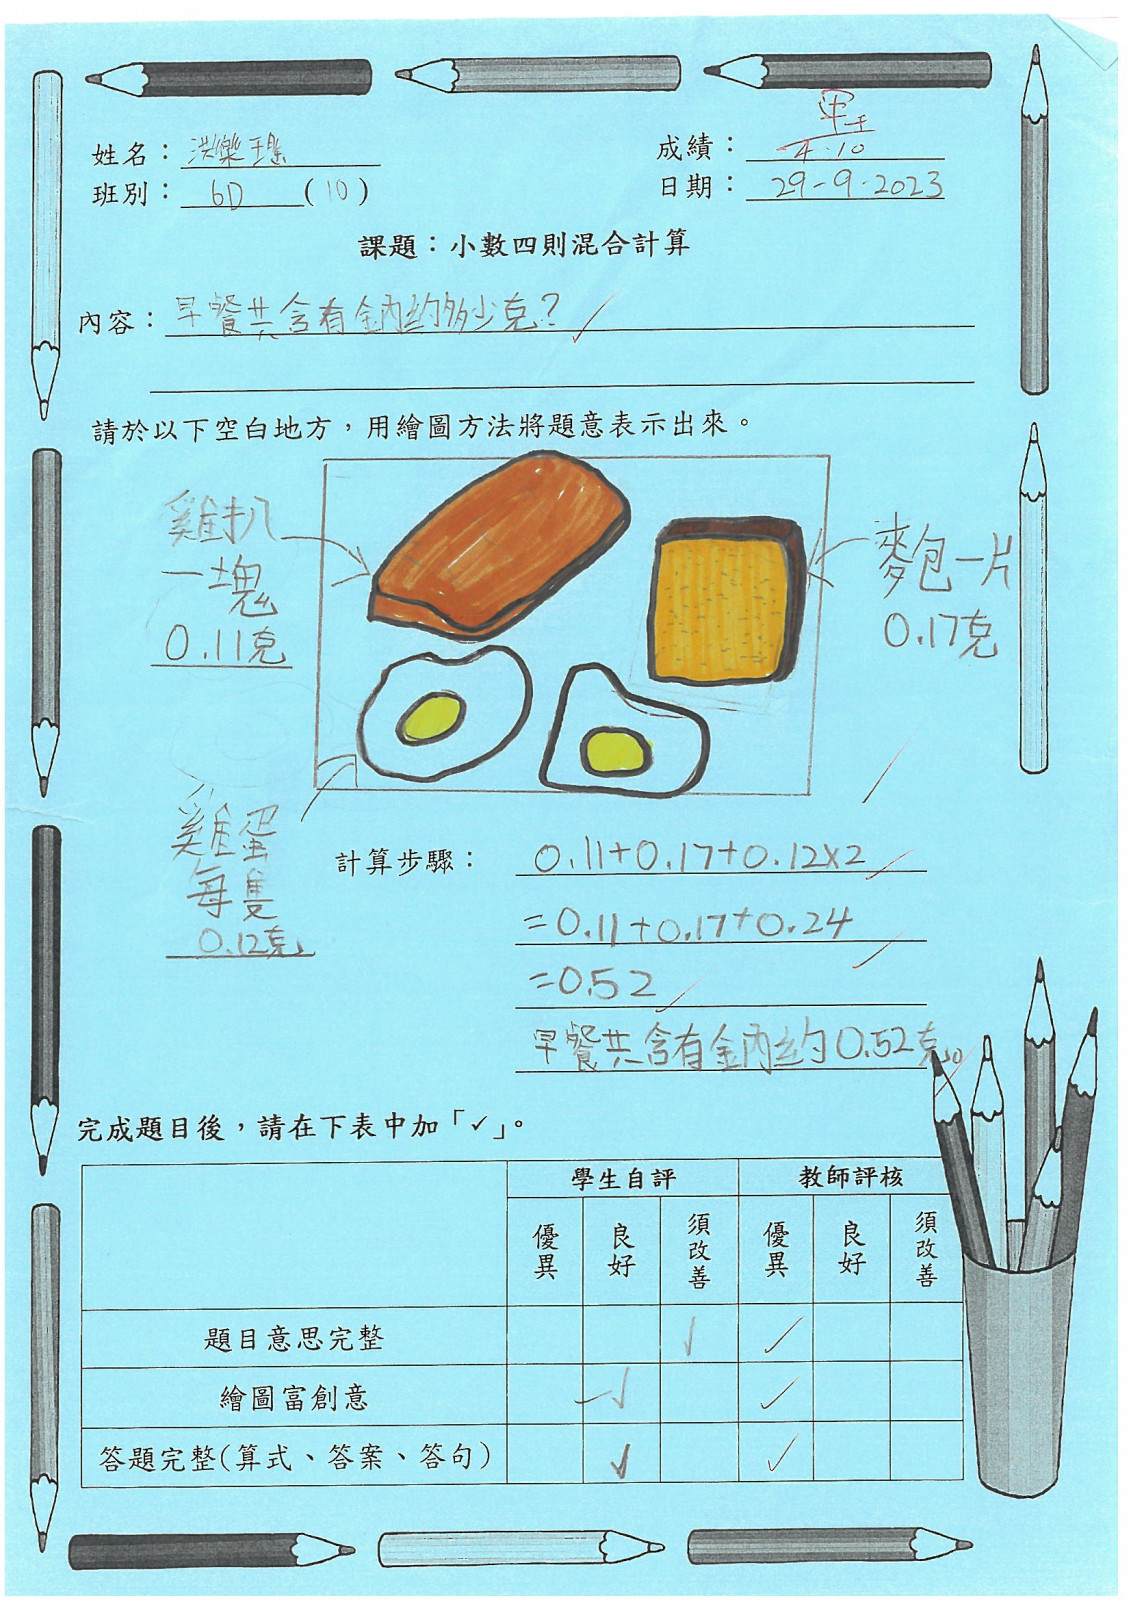 姓名：洪樂瑤
班別：6D (10)
成績：甲+
4.10
日期：29-9-2023
課題：小數四則混合計算
內容：早餐共含有鈉約多少克？
請於以下空白地方，用繪圖方法將題意表示出來。
雞扒
一塊
0.11克
麥包一片
0.17克
雞蛋
每隻
0.12克
計算步驟： 0.11+0.17+0.12×2
=0.11+0.17+0.24
=0.52
早餐共含有鈉約0.52克。
完成題目後，請在下表中加「✓」。
學生自評 教師評核
優異 良好 須改善 優異 良好 須改善
題目意思完整 ✓ ✓
繪圖富創意 ✓ ✓
答題完整(算式、答案、答句) ✓ ✓